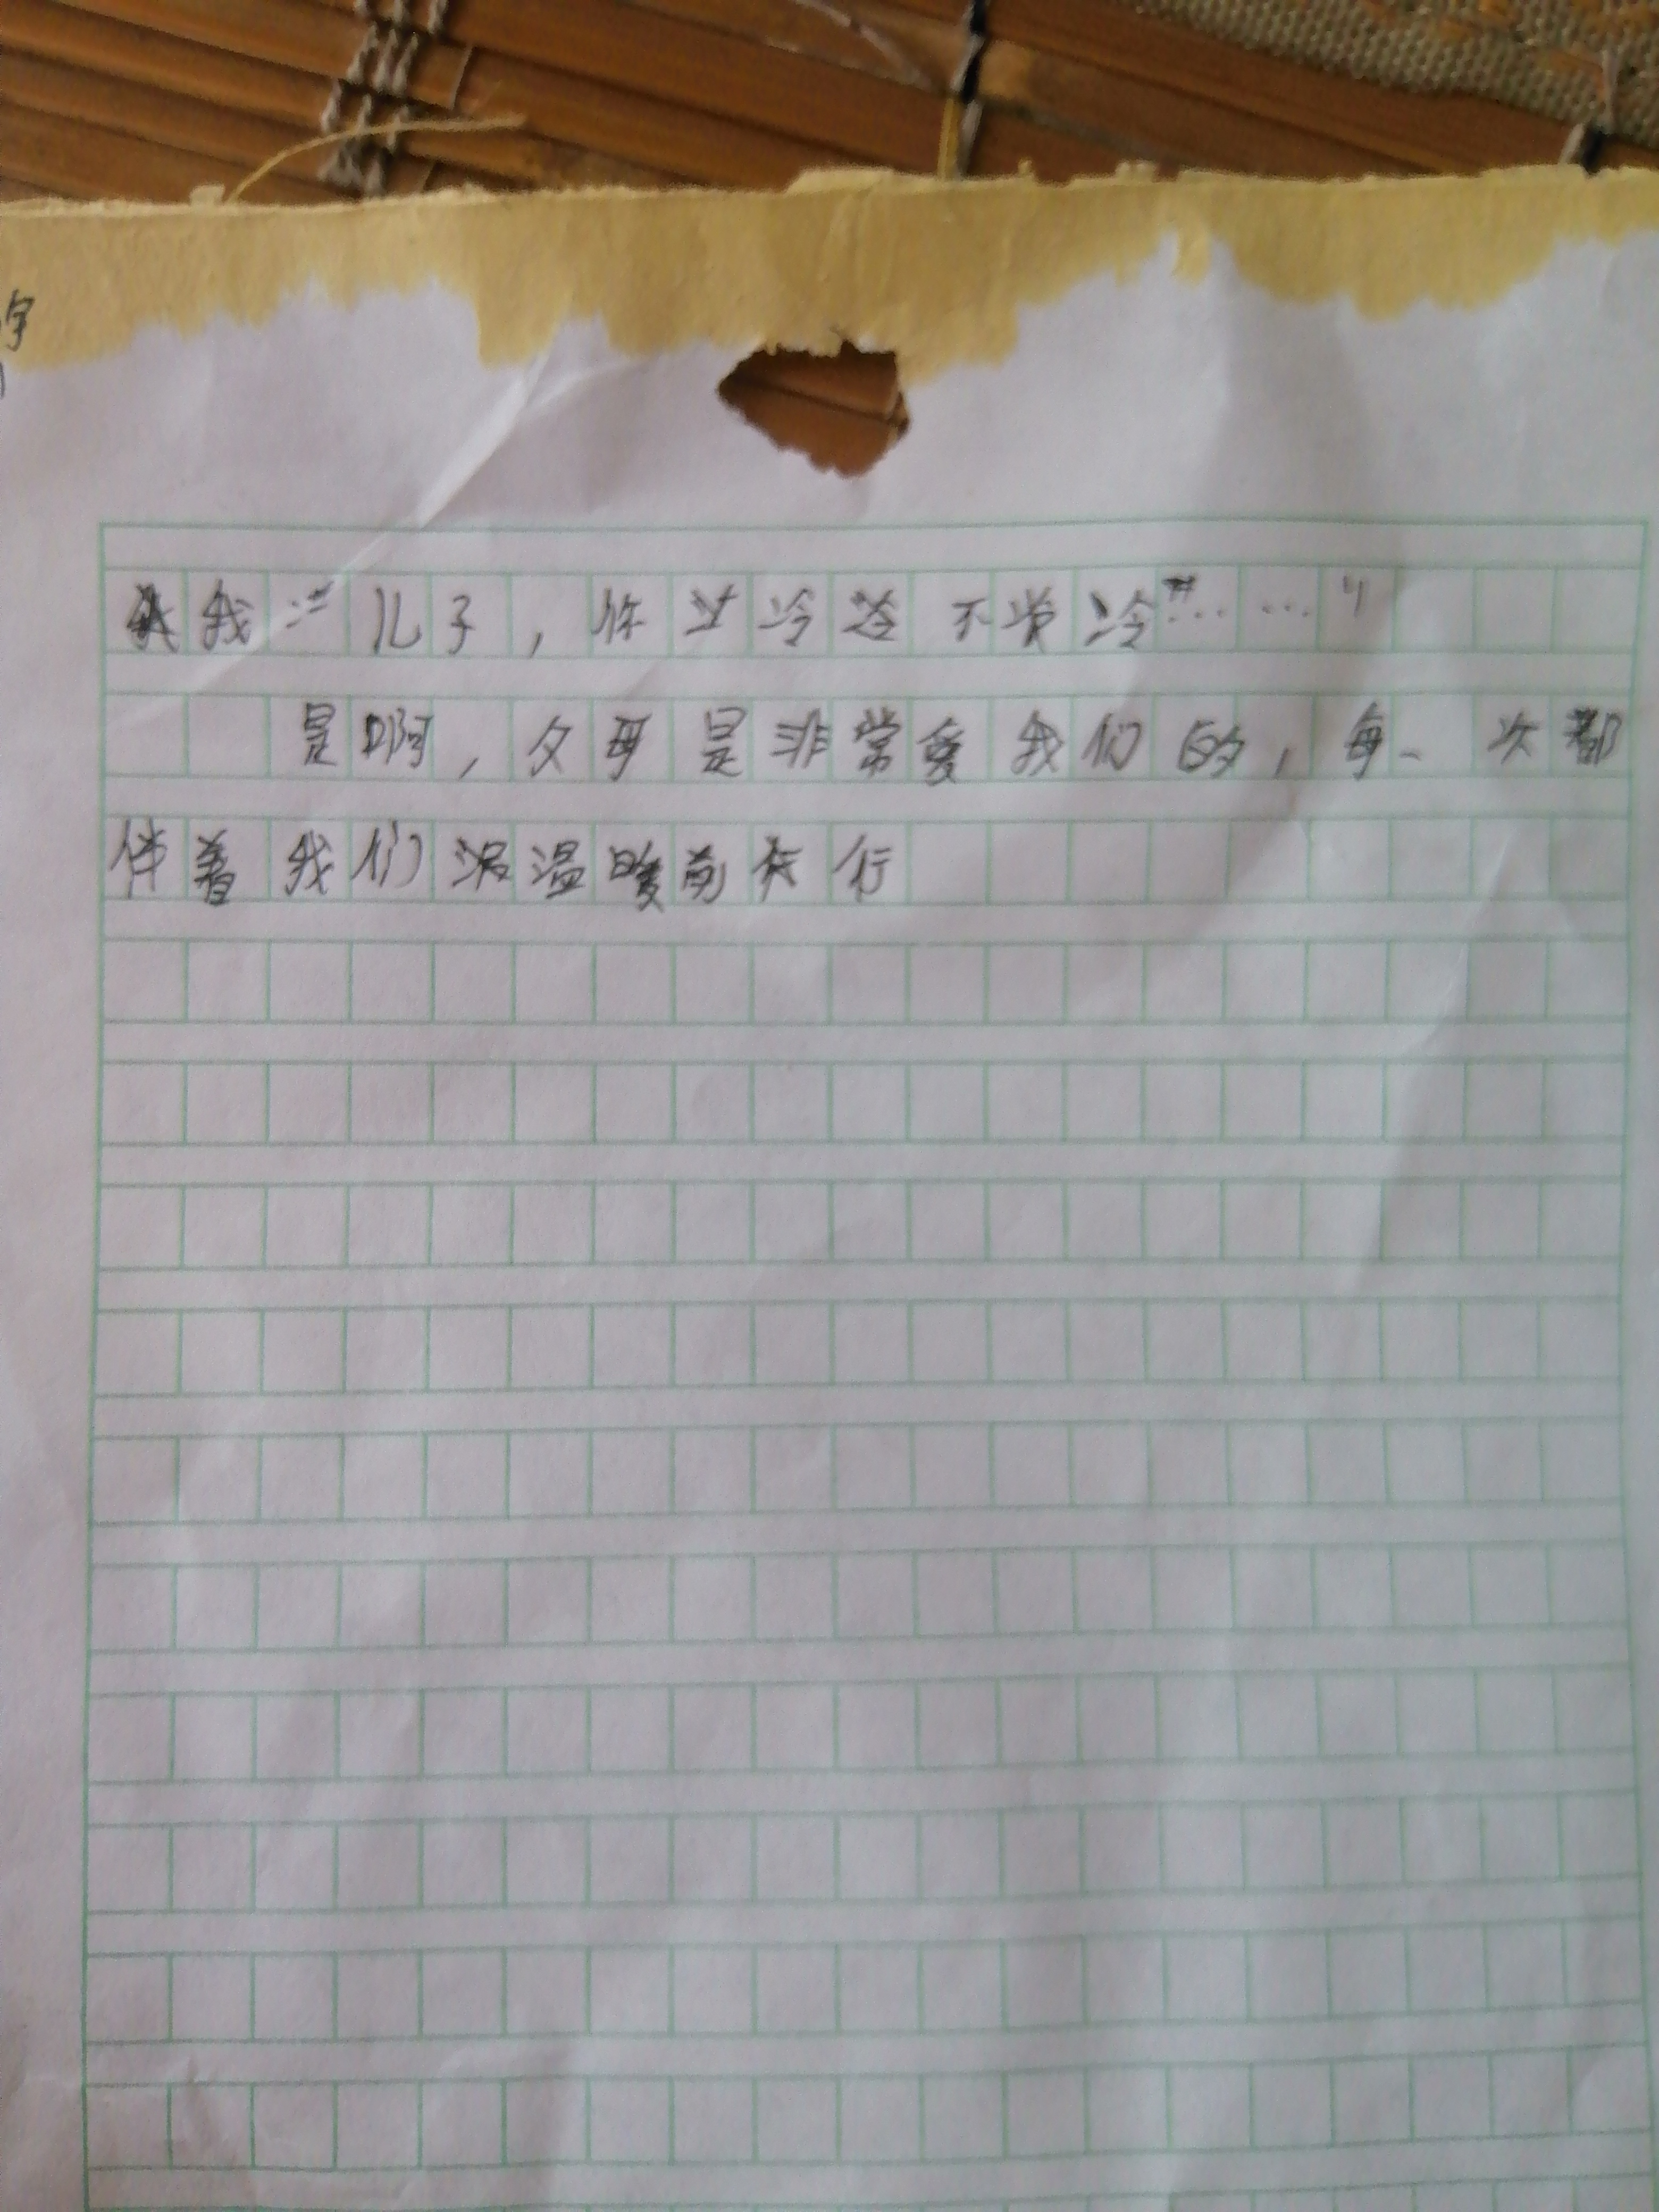 字
我:"儿子,你过冷冷不觉冷……"
是啊,父母是非常爱我们的,每一次都
伴着我们温暖前行